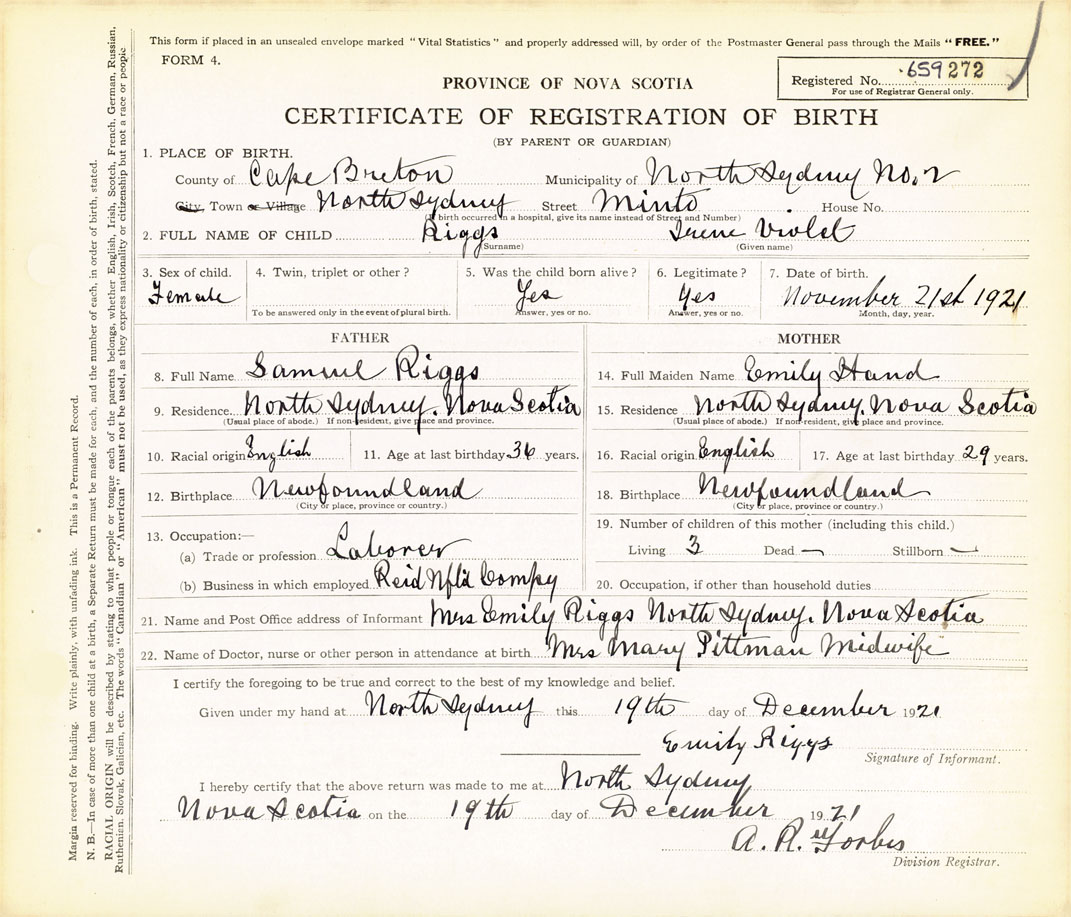 This form if placed in an unsealed envelope marked "Vital Statistics" and properly addressed will, by order of the Postmaster General pass through the Mails "FREE."
FORM 4.
Registered No. 659272
For use of Registrar General only.
PROVINCE OF NOVA SCOTIA
CERTIFICATE OF REGISTRATION OF BIRTH
(BY PARENT OR GUARDIAN)
1. PLACE OF BIRTH.
County of Cape Breton Municipality of North Sydney No. 2
City, Town or Village North Sydney Street Minto House No.
(If birth occurred in a hospital, give its name instead of Street and Number)
2. FULL NAME OF CHILD Riggs Irene Violet
(Surname) (Given name)
3. Sex of child. 4. Twin, triplet or other? 5. Was the child born alive? 6. Legitimate? 7. Date of birth.
Female Yes Yes November 21st 1921
To be answered only in the event of plural birth. Answer, yes or no. Answer, yes or no. Month, day, year.
FATHER MOTHER
8. Full Name Samuel Riggs 14. Full Maiden Name Emily Hand
9. Residence North Sydney. Nova Scotia 15. Residence North Sydney. Nova Scotia
(Usual place of abode.) If non-resident, give place and province. (Usual place of abode.) If non-resident, give place and province.
10. Racial origin English 11. Age at last birthday 36 years. 16. Racial origin English 17. Age at last birthday 29 years.
12. Birthplace Newfoundland 18. Birthplace Newfoundland
(City or place, province or country.) (City or place, province or country.)
13. Occupation:— 19. Number of children of this mother (including this child.)
(a) Trade or profession Laborer Living 3 Dead — Stillborn —
(b) Business in which employed Reid Nfld Compy 20. Occupation, if other than household duties
21. Name and Post Office address of Informant Mrs Emily Riggs North Sydney. Nova Scotia
22. Name of Doctor, nurse or other person in attendance at birth Mrs Mary Pittman Midwife
I certify the foregoing to be true and correct to the best of my knowledge and belief.
Given under my hand at North Sydney this 19th day of December 1921
Emily Riggs
Signature of Informant.
I hereby certify that the above return was made to me at North Sydney
Nova Scotia on the 19th day of December 1921
A. R. Forbes
Division Registrar.
Margin reserved for binding. Write plainly, with unfading ink. This is a Permanent Record.
N. B.—In case of more than one child at a birth, a Separate Return must be made for each, and the number of each, in order of birth, stated.
RACIAL ORIGIN will be described by stating to what people or tongue each of the parents belongs, whether English, Irish, Scotch, French, German, Russian,
Ruthenian, Slovak, Galician, etc. The words "Canadian" or "American" must not be used, as they express nationality or citizenship but not a race or people